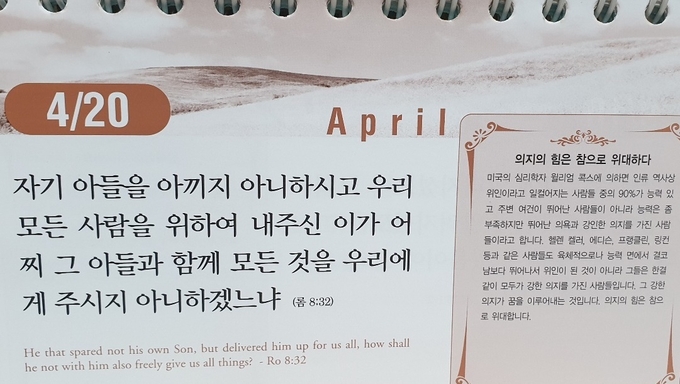 4/20
April
자기 아들을 아끼지 아니하시고 우리
모든 사람을 위하여 내주신 이가 어
찌 그 아들과 함께 모든 것을 우리에
게 주시지 아니하겠느냐 (롬 8:32)
He that spared not his own Son, but delivered him up for us all, how shall
he not with him also freely give us all things? - Ro 8:32
의지의 힘은 참으로 위대하다
미국의 심리학자 윌리엄 콕스에 의하면 인류 역사상
위인이라고 일컬어지는 사람들 중의 90%가 능력 있
고 주변 여건이 뛰어난 사람들이 아니라 능력은 좀
부족하지만 뛰어난 의욕과 강인한 의지를 가진 사람
들이라고 합니다. 헬렌 켈러, 에디슨, 프랭클린, 링컨
등과 같은 사람들도 육체적으로나 능력 면에서 결코
남보다 뛰어나서 위인이 된 것이 아니라 그들은 한결
같이 모두가 강한 의지를 가진 사람들입니다. 그 강한
의지가 꿈을 이루어내는 것입니다. 의지의 힘은 참으
로 위대합니다.